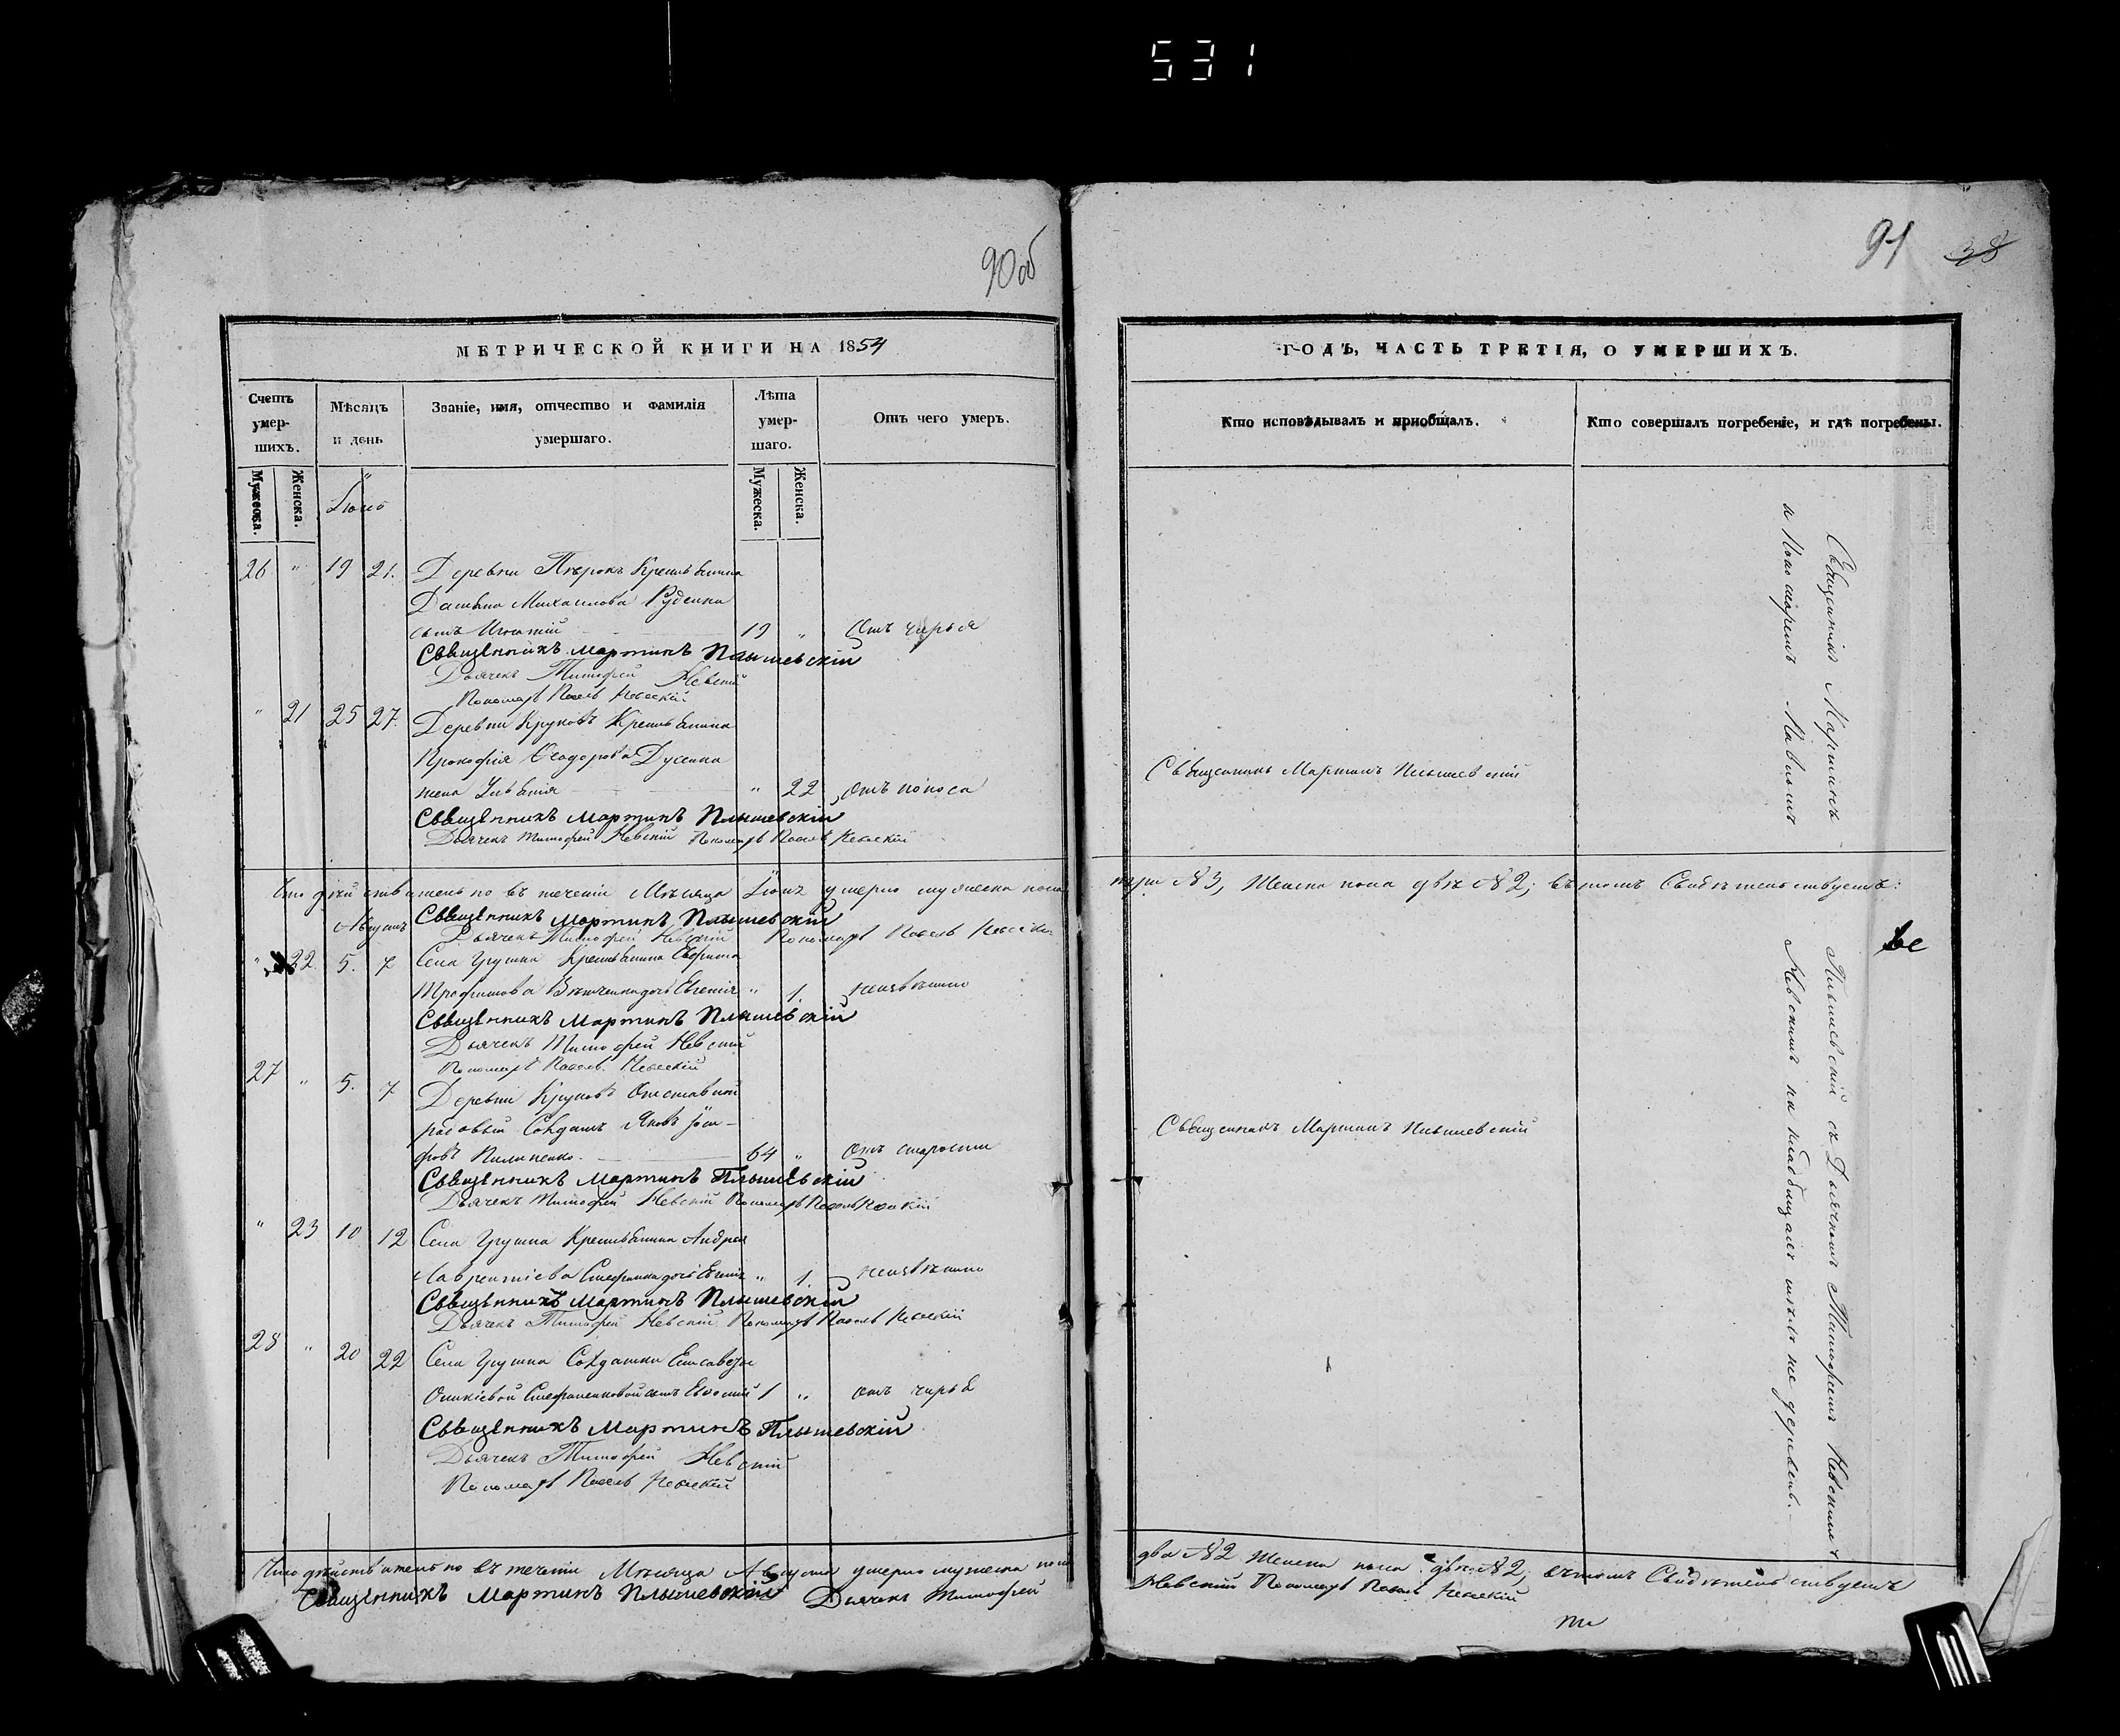 531
90об
МЕТРИЧЕСКОЙ КНИГИ НА 1854
Счетъ умер-шихъ.
Мужеска.
Женска.
Мѣсяцъ и день
Званіе, имя, отчество и фамилія умершаго.
Лѣта умер-шаго.
Мужеска.
Женска.
Отъ чего умеръ.
Іюль
26 " 19 21. Деревни Крестьянина
Михаилова Руденка
сынъ Игнатій 19 " Отъ чирья
Священникъ Мартинъ Плышевскій
Дьячекъ Тимофей Невскій
Пономарь Павелъ Невскій
" 21 25 27. Деревни Круковъ Крестьянина
Прокофія Ѳеодорова
жена " 22 отъ поноса
Священникъ Мартинъ Плышевскій
Дьячекъ Тимофей Невскій Пономарь Павелъ Невскій
Что дѣйствительно въ теченіи Мѣсяца умерло мужеска пола
Августъ
Священникъ Мартинъ Плышевскій
Дьячекъ Тимофей Невскій Пономарь Павелъ Невскій
" 22 5. 7 Села Грушки Крестьянина
Трофимова дочь Евгенія " 1. неизвѣстно
Священникъ Мартинъ Плышевскій
Дьячекъ Тимофей Невскій
Пономарь Павелъ Невскій
27 " 5. 7 Деревни Круковъ Отставной
рядовый Солдатъ Яковъ Іоси-
фовъ Пилипенко. 64 " Отъ старости
Священникъ Мартинъ Плышевскій
Дьячекъ Тимофей Невскій Пономарь Павелъ Невскій
" 23 10 12 Села Грушки Крестьянина Андрея
Лаврентіева дочь " 1. неизвѣстно
Священникъ Мартинъ Плышевскій
Дьячекъ Тимофей Невскій Пономарь Павелъ Невскій
28 " 20 22 Села Грушки Солдатки Елисаветы
сынъ 1 " отъ чирья
Священникъ Мартинъ Плышевскій
Дьячекъ Тимофей Невскій
Пономарь Павелъ Невскій
Что дѣйствительно въ теченіи Мѣсяца Августа умерло мужеска пола
Священникъ Мартинъ Плышевскій Дьячекъ Тимофей
91 38
ГОДЪ, ЧАСТЬ ТРЕТІЯ, О УМЕРШИХЪ.
Кто исповѣдывалъ и приобщалъ.
Кто совершалъ погребеніе, и гдѣ погребены.
Священникъ Мартинъ Плышевскій
три №3, Женска пола двѣ №2; въ томъ Свидѣтельствуетъ:
Священникъ Мартинъ Плышевскій
Священникъ Мартинъ Плышевскій съ Дьячкомъ Тимофеемъ Невскимъ
и Пономаремъ Павломъ Невскимъ на кладбищахъ деревень.
два №2 Женска пола двѣ №2; въ томъ Свидѣтельствуетъ
Невскій Пономарь Павелъ Невскій